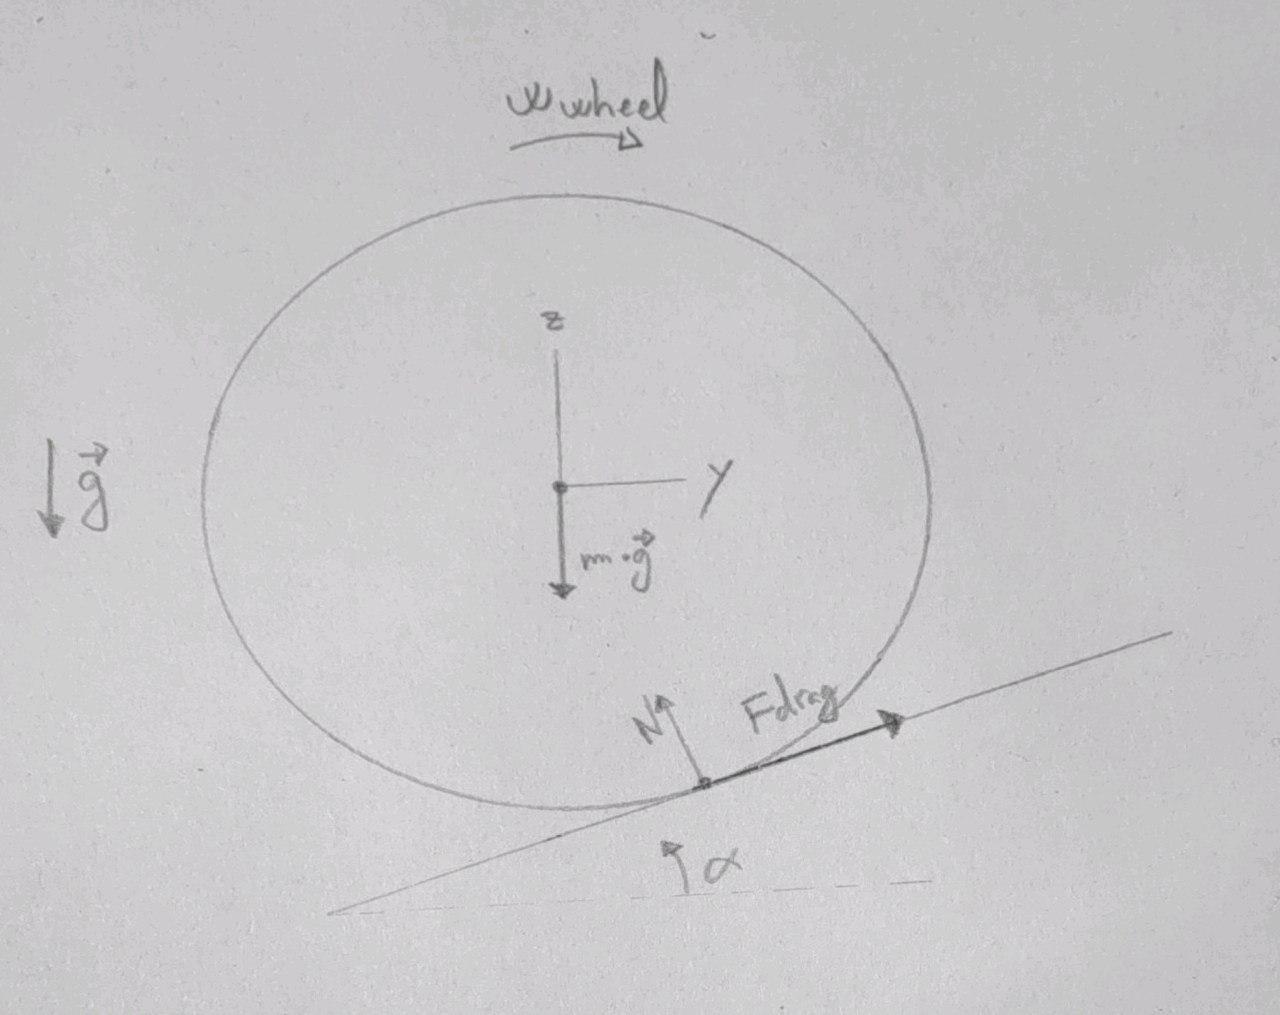 ω wheel
z
g⃗
y
m·g⃗
N
Fdrag
α